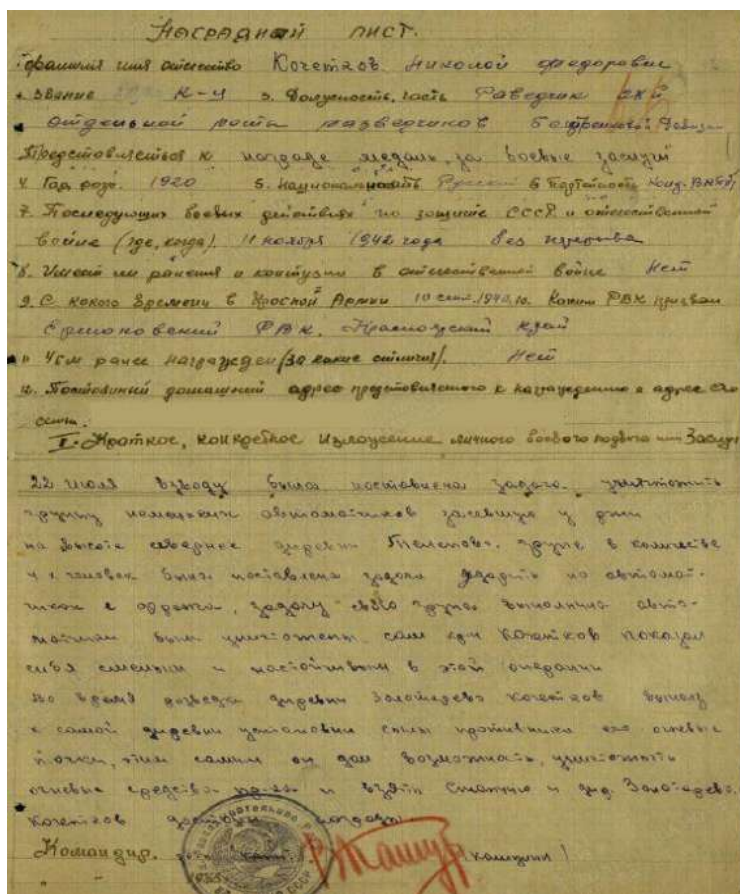 Наградной лист.
фамилия имя отчество Кочетков Николай Федорович
Звание к-ц 3. Должность, часть Разведчик
отдельной роты разведчиков
Представляется к награде медаль за боевые заслуги
4. Год рожд. 1920 5. Национальность Русский 6 Партийность Канд. ВКП(б)
7. боевых действиях по защите СССР и отечественной
войне (где, когда). 11 ноября 1942 года без
8. Имеет ли ранения и контузии в отечественной войне Нет
9. С какого времени в Красной Армии 10 1940. 10. Каким РВК призван
РВК. Красноярский край
11 Чем ранее награжден (за какие отличия). Нет
12. Постоянный домашний адрес представляемого к награждению и адрес его
семьи.
I. Краткое, конкретное изложение личного боевого подвига или заслуг
22 июля взводу была поставлена задача уничтожить
группу немецких автоматчиков засевшую у
на высоте севернее деревни группе в количестве
4х человек была поставлена задача ударить по автомат-
чикам с задачу свою группа выполнила авто-
матчики были уничтожены сам Кочетков показал
себя смелым и настойчивым в этой операции
во время деревни Золотарево Кочетков
к самой деревни установил силы противника его огневые
точки, этим самым он дал возможность, уничтожить
огневые средства и взять станцию и дер. Золотарево.
Кочетков достоин награды
Командир